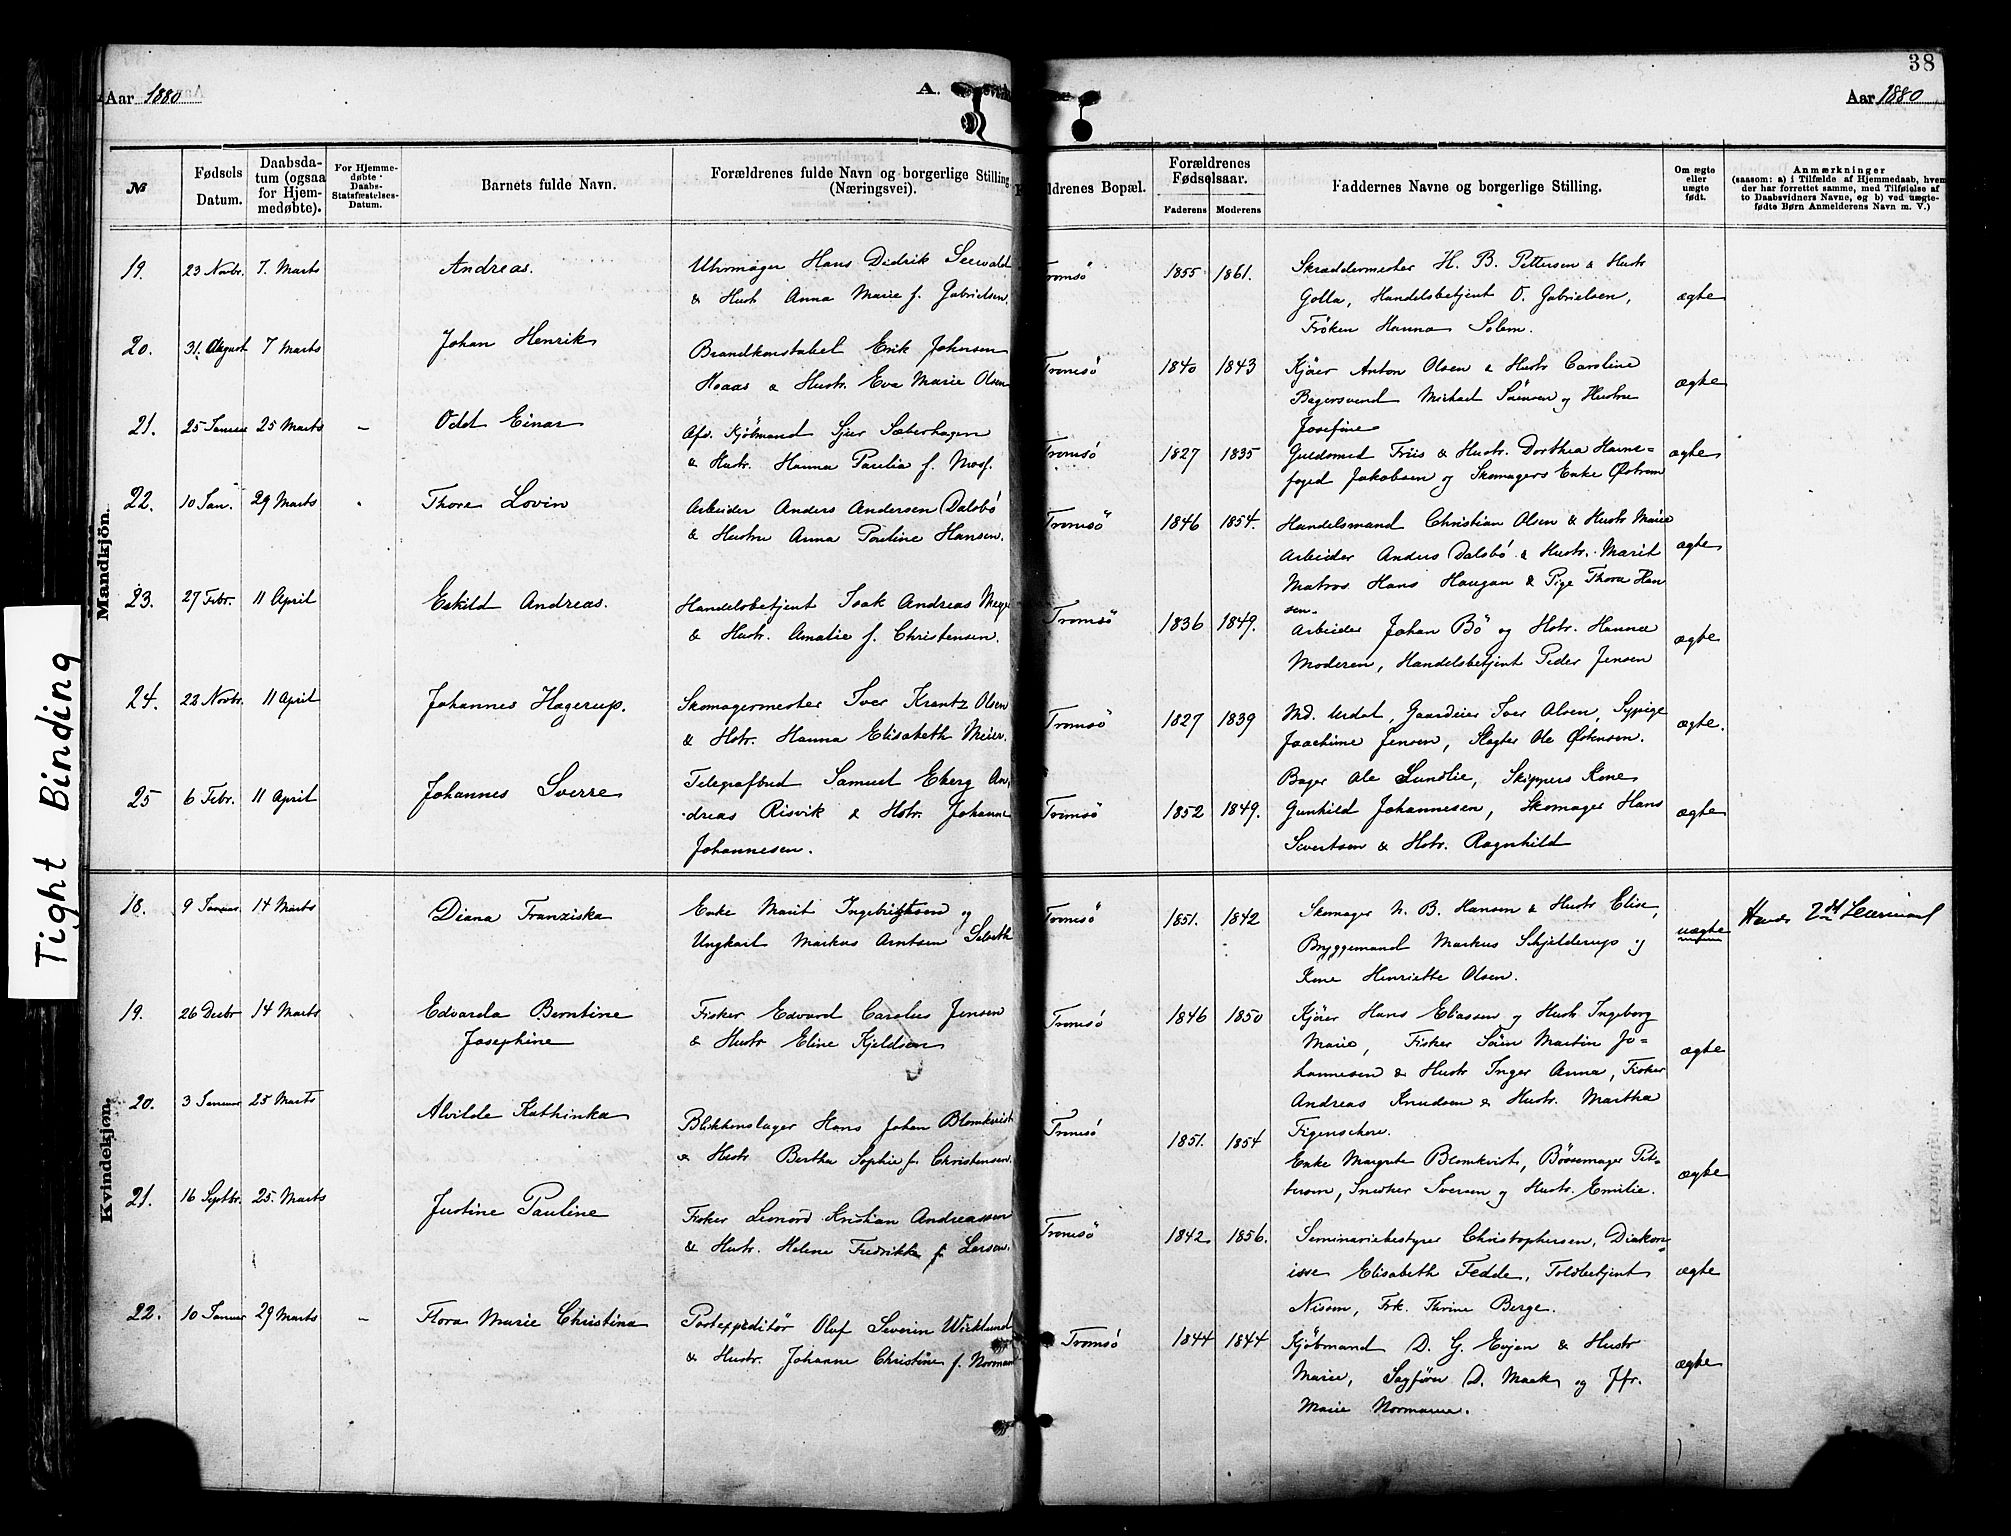 38
Aar 1880
A.
Aar 1880
№
Fødsels Datum.
Daabsdatum (ogsaa for Hjemmedøbte).
For Hjemmedøbte Daabs-Statsfæstelses-Datum.
Barnets fulde Navn.
Forældrenes fulde Navn og borgerlige Stilling (Næringsvei).
ldrenes Bopæl.
Forældrenes Fødselsaar.
Faderens Moderens
Faddernes Navne og borgerlige Stilling.
Om ægte eller uægte født.
Anmærkninger
(saasom: a) i Tilfælde af Hjemmedaab, hvem
der har forrettet samme, med Tilføielse af
to Daabsvidners Navne, og b) ved uægte-
fødte Børn Anmelderens Navn m. V.)
Tight Binding
Mandkjön.
19. 23 Novbr. 7. Marts Andreas.
Uhrmager Hans Didrik Seewald
& Hust. Anna Marie f. Gabrielsen.
Tromsö 1855 1861.
Skræddermester H. B. Pettersen & Hustr
Golla, Handelsbetjent O. Gabrielsen,
Fröken Hanna Solem.
ægte
20. 31. August 7 Marts Johan Henrik
Brandkonstabel Erik Johnsen
Hoaas & Hustr. Eva Marie Olsen
Tromsö 1840 1843
Kjører Anton Olsen & Hustr Caroline
Bagersvend Michael Sörensen og Hustru
Josefine
ægte
21. 25 Januar 25 Marts – Odd Einar
Afd. Kjöbmand Sjur Sæterhagen
& Hustr. Hanna Paulia f. Mosf.
Tromsö 1827 1835
Guldsmed Friis & Hustr. Dorthea Havne-
foged Jakobsen og Skomagers Enke Østrem
ægte
22. 10 Jan. 29 Marts Thore Lovin
Arbeider Anders Andersen Dalsbö
& Hustru Anna Pauline Hansen.
Tromsö 1846 1854.
Handelsmand Christian Olsen & Hustr Marie
Arbeider Anders Dalsbö & Hustr. Marit
Matros Hans Haugan & Pige Thora Han
sen.
ægte
23. 27 Febr. 11 April Eskild Andreas.
Handelsbetjent Isak Andreas
& Hustr. Amalie f. Christensen.
Tromsö 1836 1849.
Arbeider Johan Bö og Hstr. Hanna
Moderen, Handelsbetjent Peder Jensen
ægte
24. 22 Novbr. 11 April Johannes Hagerup.
Skomagermester Iver Krantz Olsen
& Hstr. Hanna Elisabeth Meier.
Tromsö 1827 1839
Md. Urdal, Gaardeier Iver Olsen, Sypige
Joachime Jensen, Slagter Ole
ægte.
25 6 Febr. 11 April Johannes Sverre
Telegrafbud Samuel Eberg An-
dreas Risvik & Hstr. Johanne
Johannesen.
Tromsö 1852 1849.
Bager Ole Lundlie, Skippers Kone
Gunhild Johannesen, Skomager Hans
Sivertsen & Hstr. Ragnhild
ægte
Kvindekjøn.
18. 9 Januar 14 Marts Diana Franziska
Enke Marit Ingebrigtsen og
Ungkarl Markus Arntsen
Tromsö 1851. 1842
Skomager N. B. Hansen & Hustr Elise,
Bryggemand Markus Schjelderup og
Kone Henriette Olsen.
uægte
19. 26 Decbr 14 Marts Edvarda Berntine
Josephine
Fisker Edvard Carelius Jensen
& Hustr Eline Kjeldsen
Tromsö 1846 1850
Kjører Hans Eliassen og Hustr Ingeborg
Marie, Fisker Sören Martin Jo-
hannesen & Hustr Inger Anna, Fisker
Andreas Knudsen & Hustr. Martha
Figenschou.
ægte
20. 3 Januar 25 Marts Alvilde Kathinka
Blikkenslager Hans Johan Blomkvist
& Hustr Bertha Sophie f. Christensen.
Tromsö 1851. 1854
Enke Margrete Blomkvist, Bössemager Pet-
tersen, Snedker Iversen og Hustr. Emilie.
ægte
21. 16 Septbr. 25. Marts Justine Pauline
Fisker Leonord Kristian Andreassen
& Hustr. Helene Fredrikke f. Larsen.
Tromsö 1842 1856.
Seminariebestyrer Christophersen, Diakon-
isse Elisabeth Fedde, Toldbetjent
Nissen, Frk. Thrine Berge.
ægte
22. 10 Januar 29 Marts – Flora Marie Christina
Postexpeditör Oluf Severin Wicklund
& Hustr. Johanne Christine f. Normann
Tromsö 1844 1844
Kjöbmand D. G. Evjen & Hustr
Marie, Sagförer D. Mack og Jfr.
Marie Normann.
ægte